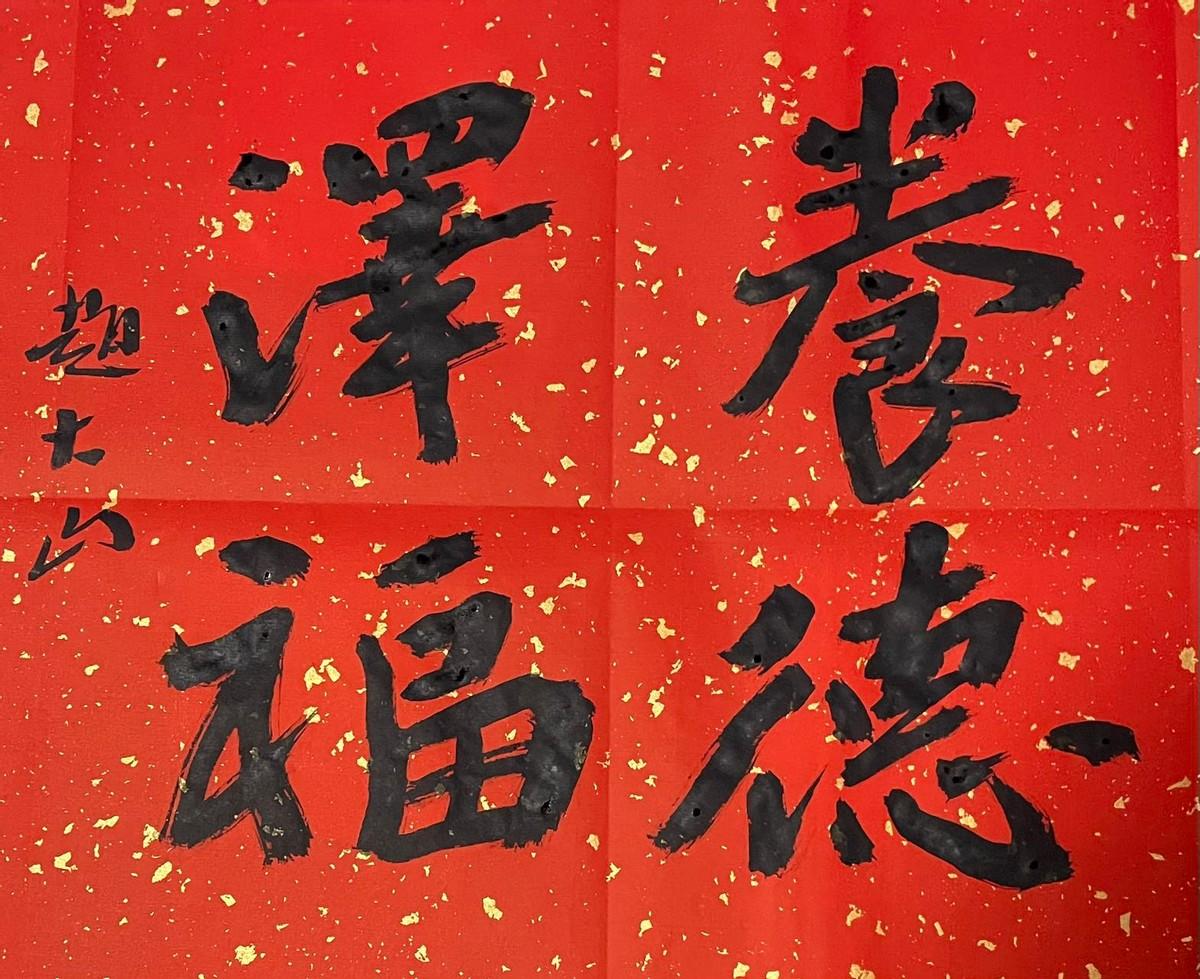 養德
澤福
趙大山